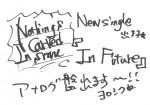 Nothing's
Carved
In Stone
New single
出ます
In Future
アナログ盤出ます〜!!